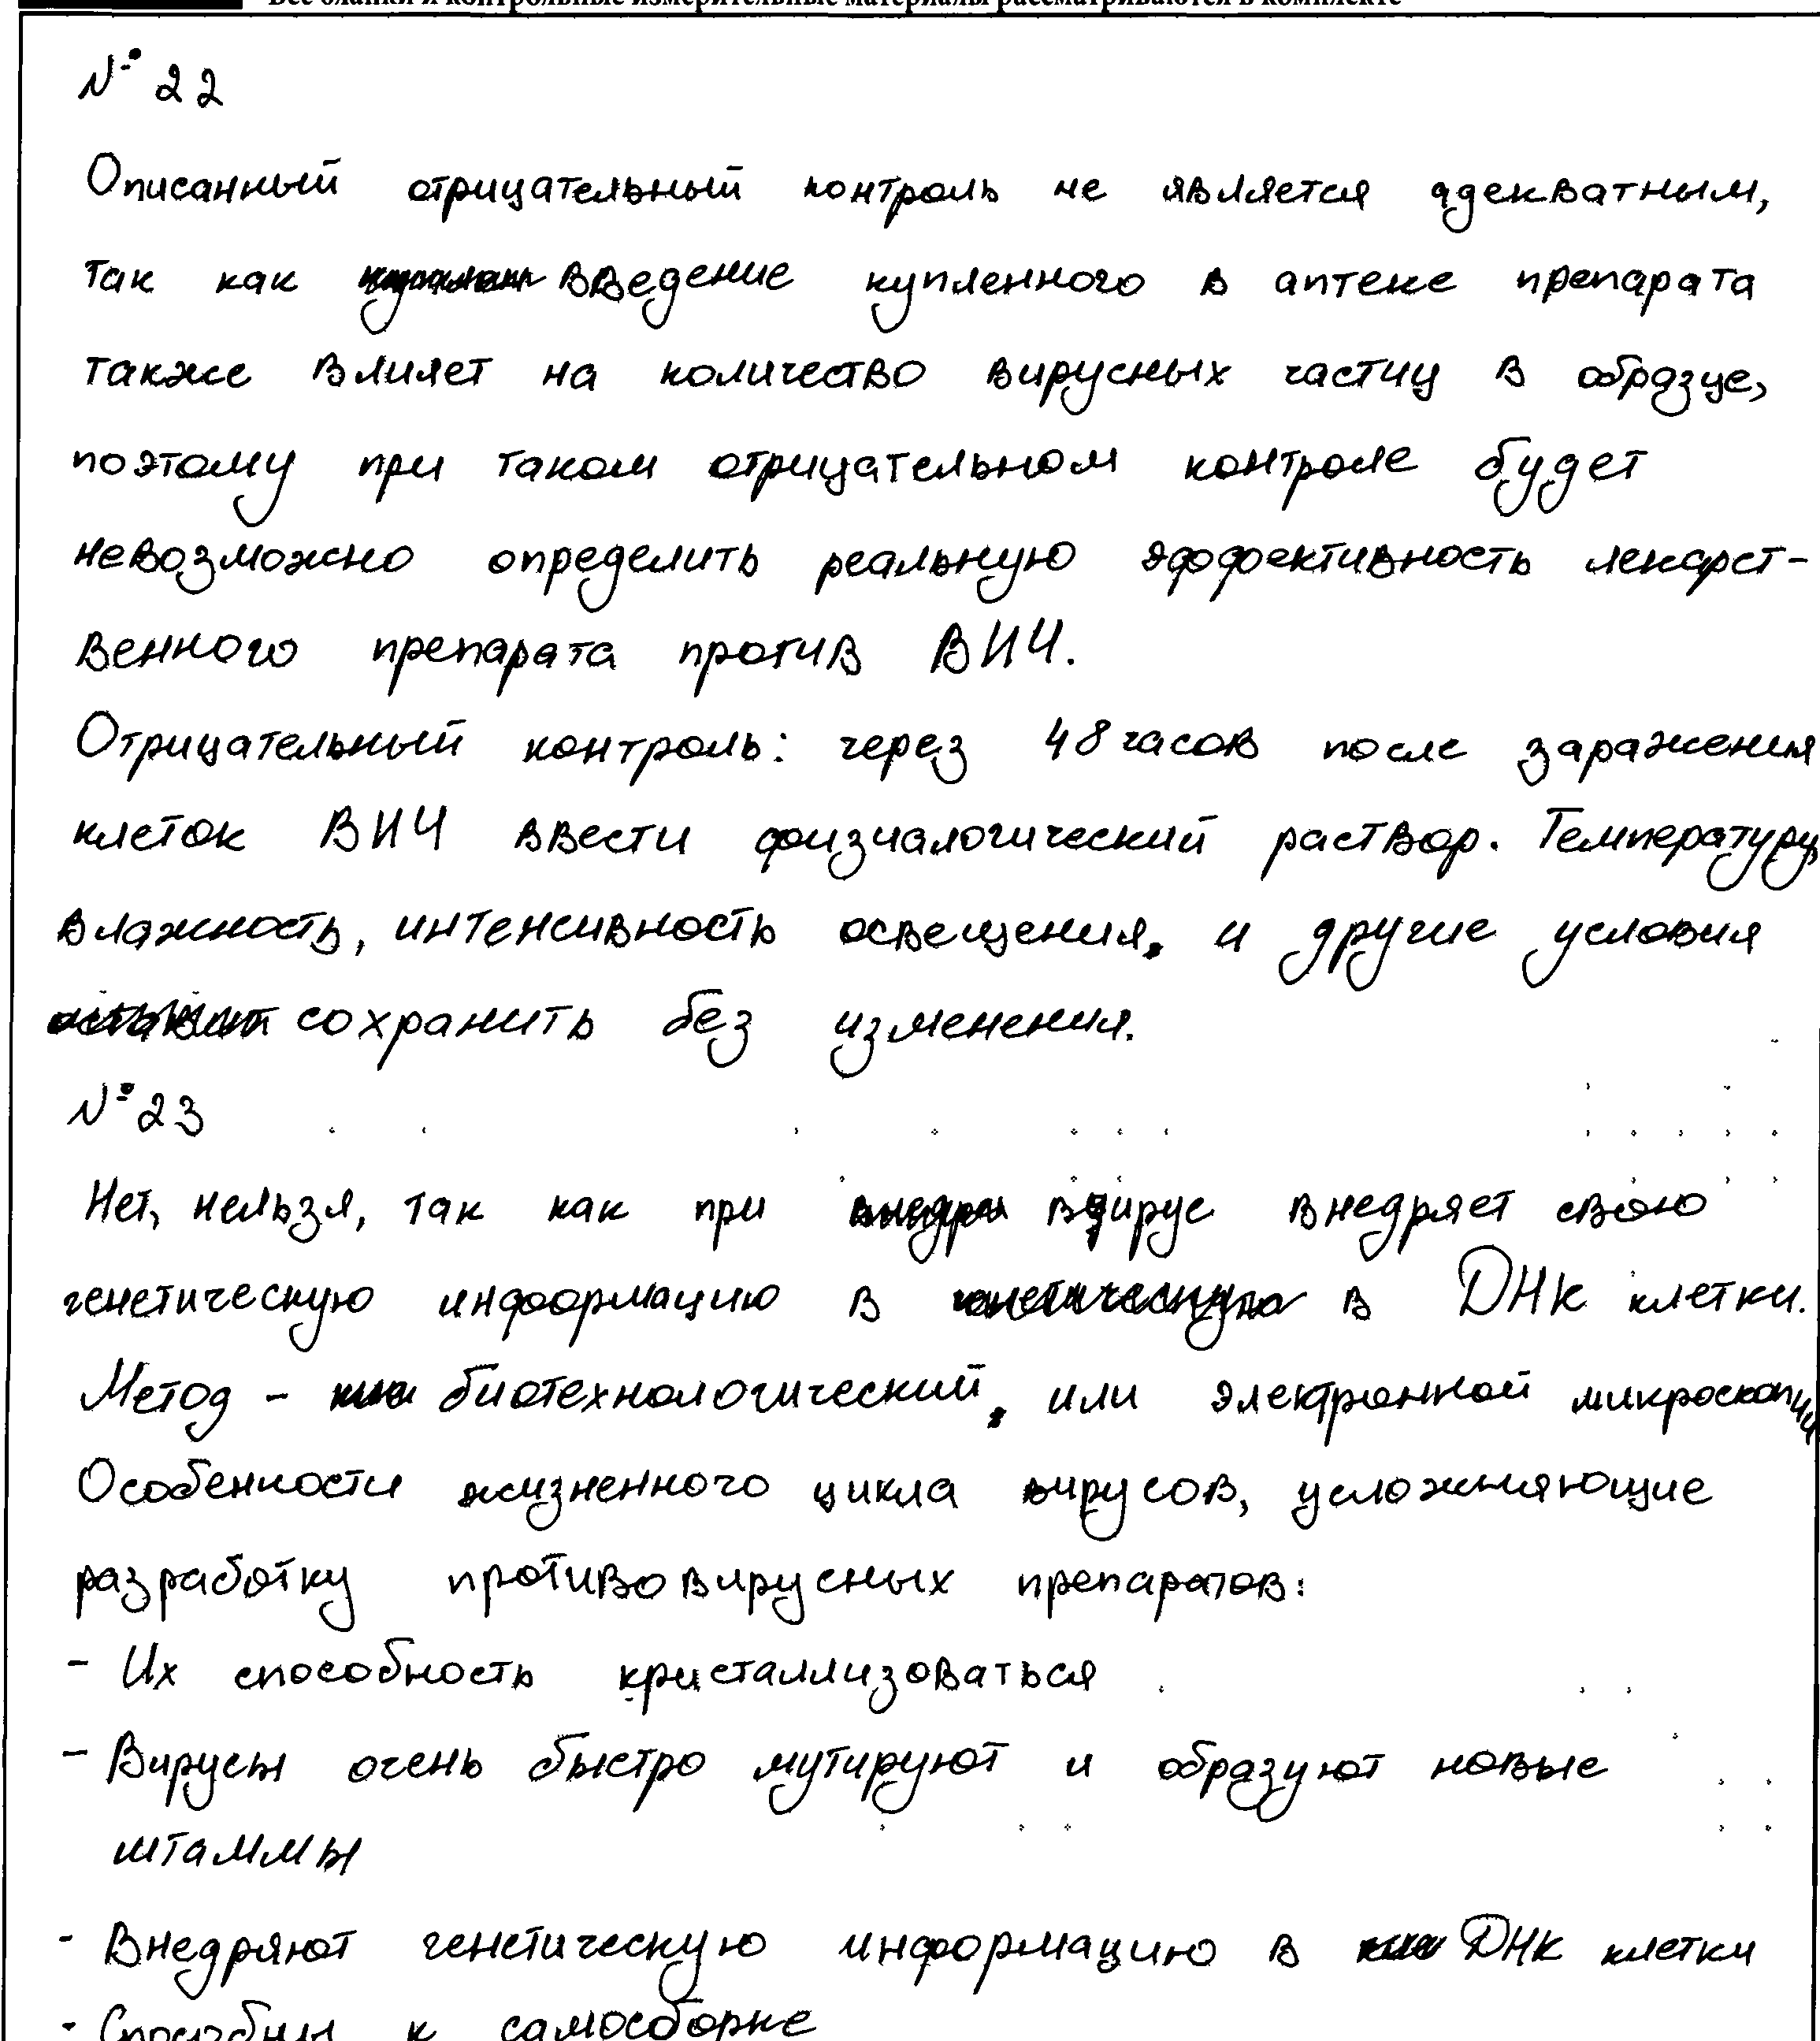 Все бланки и контрольные измерительные материалы рассматриваются в комплекте
№ 22
Описанный отрицательный контроль не является адекватным,
так как введение купленного в аптеке препарата
также влияет на количество вирусных частиц в образце,
поэтому при таком отрицательном контроле будет
невозможно определить реальную эффективность лекарст-
венного препарата против ВИЧ.
Отрицательный контроль: через 48 часов после заражения
клеток ВИЧ ввести физиалогический раствор. Температуру,
влажность, интенсивность освещения и другие условия
сохранить без изменения.
№ 23
Нет, нельзя, так как при вирус внедряет свою
генетическую информацию в в ДНК клетки.
Метод - биотехнологический, или электронной микроскопии
Особенности жизненного цикла вирусов, усложняющие
разработку противовирусных препаратов:
- Их способность кристаллизоваться
- Вирусы очень быстро мутируют и образуют новые
штаммы
- Внедряют генетическую информацию в ДНК клетки
- Способны к самосборке